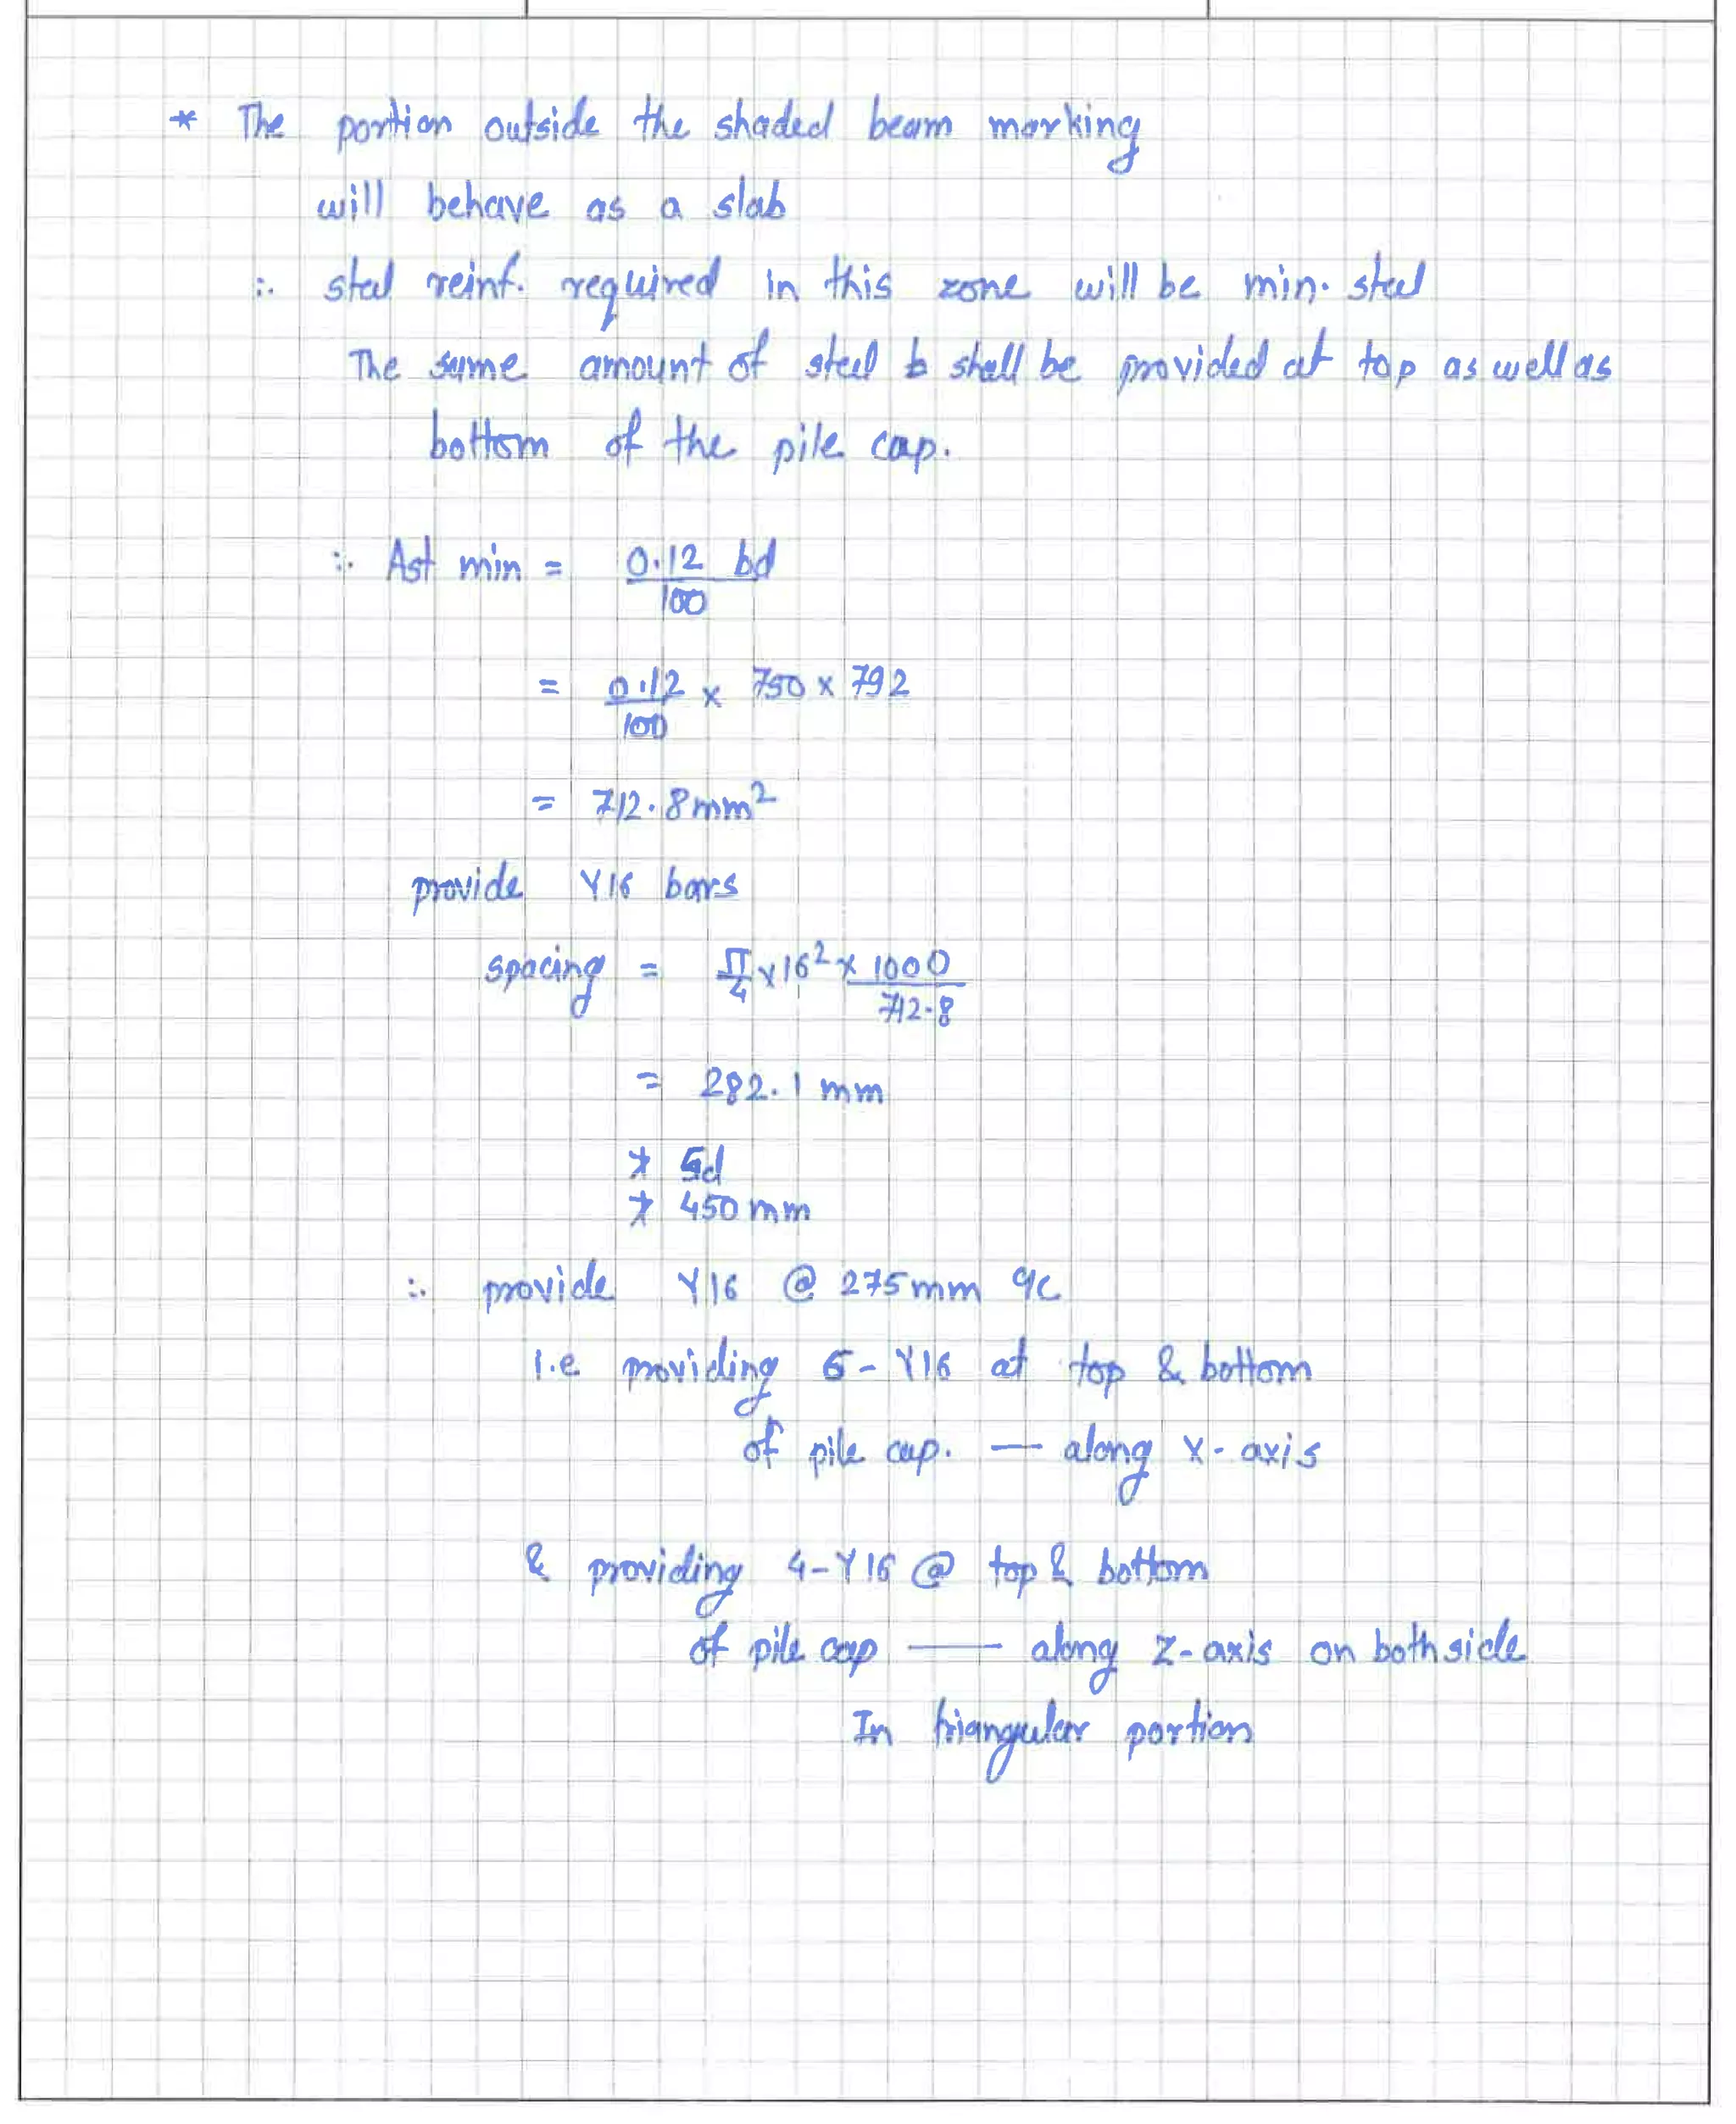 * The portion outside the shaded beam marking
will behave as a slab
∴ steel reinf. required in this zone will be min. steel
The same amount of steel b shall be provided at top as well as
bottom of the pile cap.
∴ Ast min = 0.12 bd / 100
= 0.12/100 x 750 x 792
= 712.8 mm²
provide Y16 bars
spacing = π/4 x 16² x 1000/712.8
= 282.1 mm
≯ 5d
≯ 450 mm
∴ provide Y16 @ 275 mm c/c
i.e providing 5 - Y16 at top & bottom
of pile cap. — along X - axis
& providing 4 - Y16 @ top & bottom
of pile cap —— along Z - axis on both side
In triangular portion